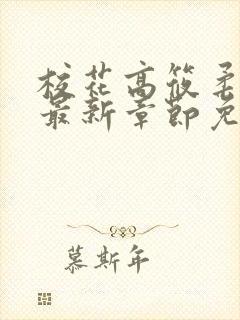 校花高筱柔
最新章節免
慕斯年